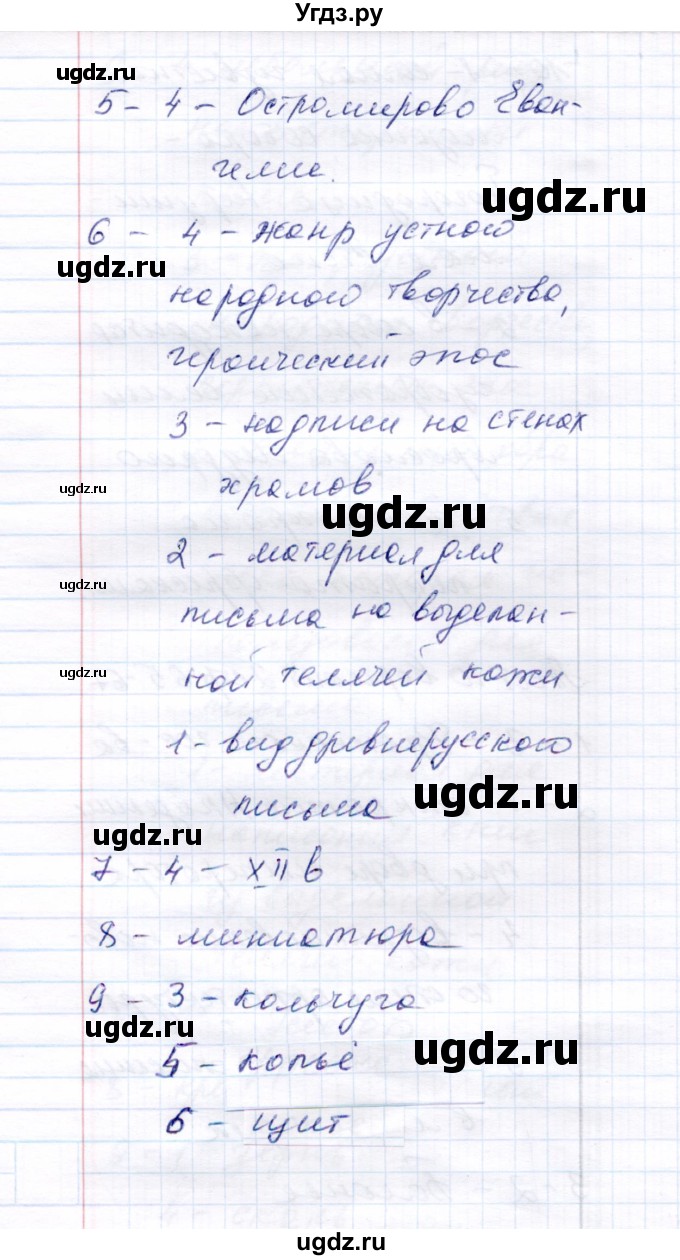 Угдз.ру
ugdz.ru
5 - 4 - Остромирово Еван-
гелие.
ugdz.ru
6 - 4 - жанр устного
ugdz.ru
народного творчества,
героический эпос
3 - надписи на стенах
ugdz.ru
храмов
ugdz.ru
2 - материал для
ugdz.ru
письма на выделан-
ugdz.ru
ной телячей кожи
1 - вид древнерусского
ugdz.ru
письма
ugdz.ru
7 - 4 - XII в
8 - миниатюра
9 - 3 - кольчуга
ugdz.ru
ugdz.ru
5 - копьё
6 - щит
ugdz.ru